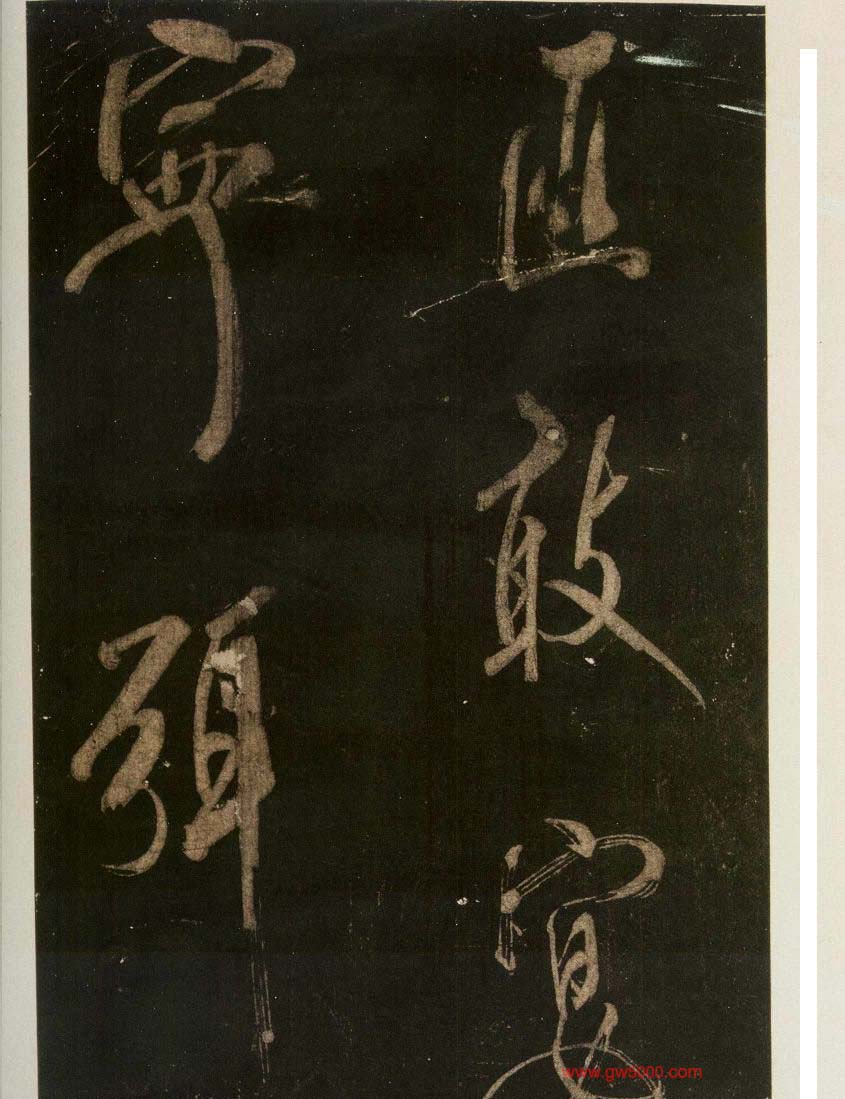 直敢
寧弭
www.gw5000.com